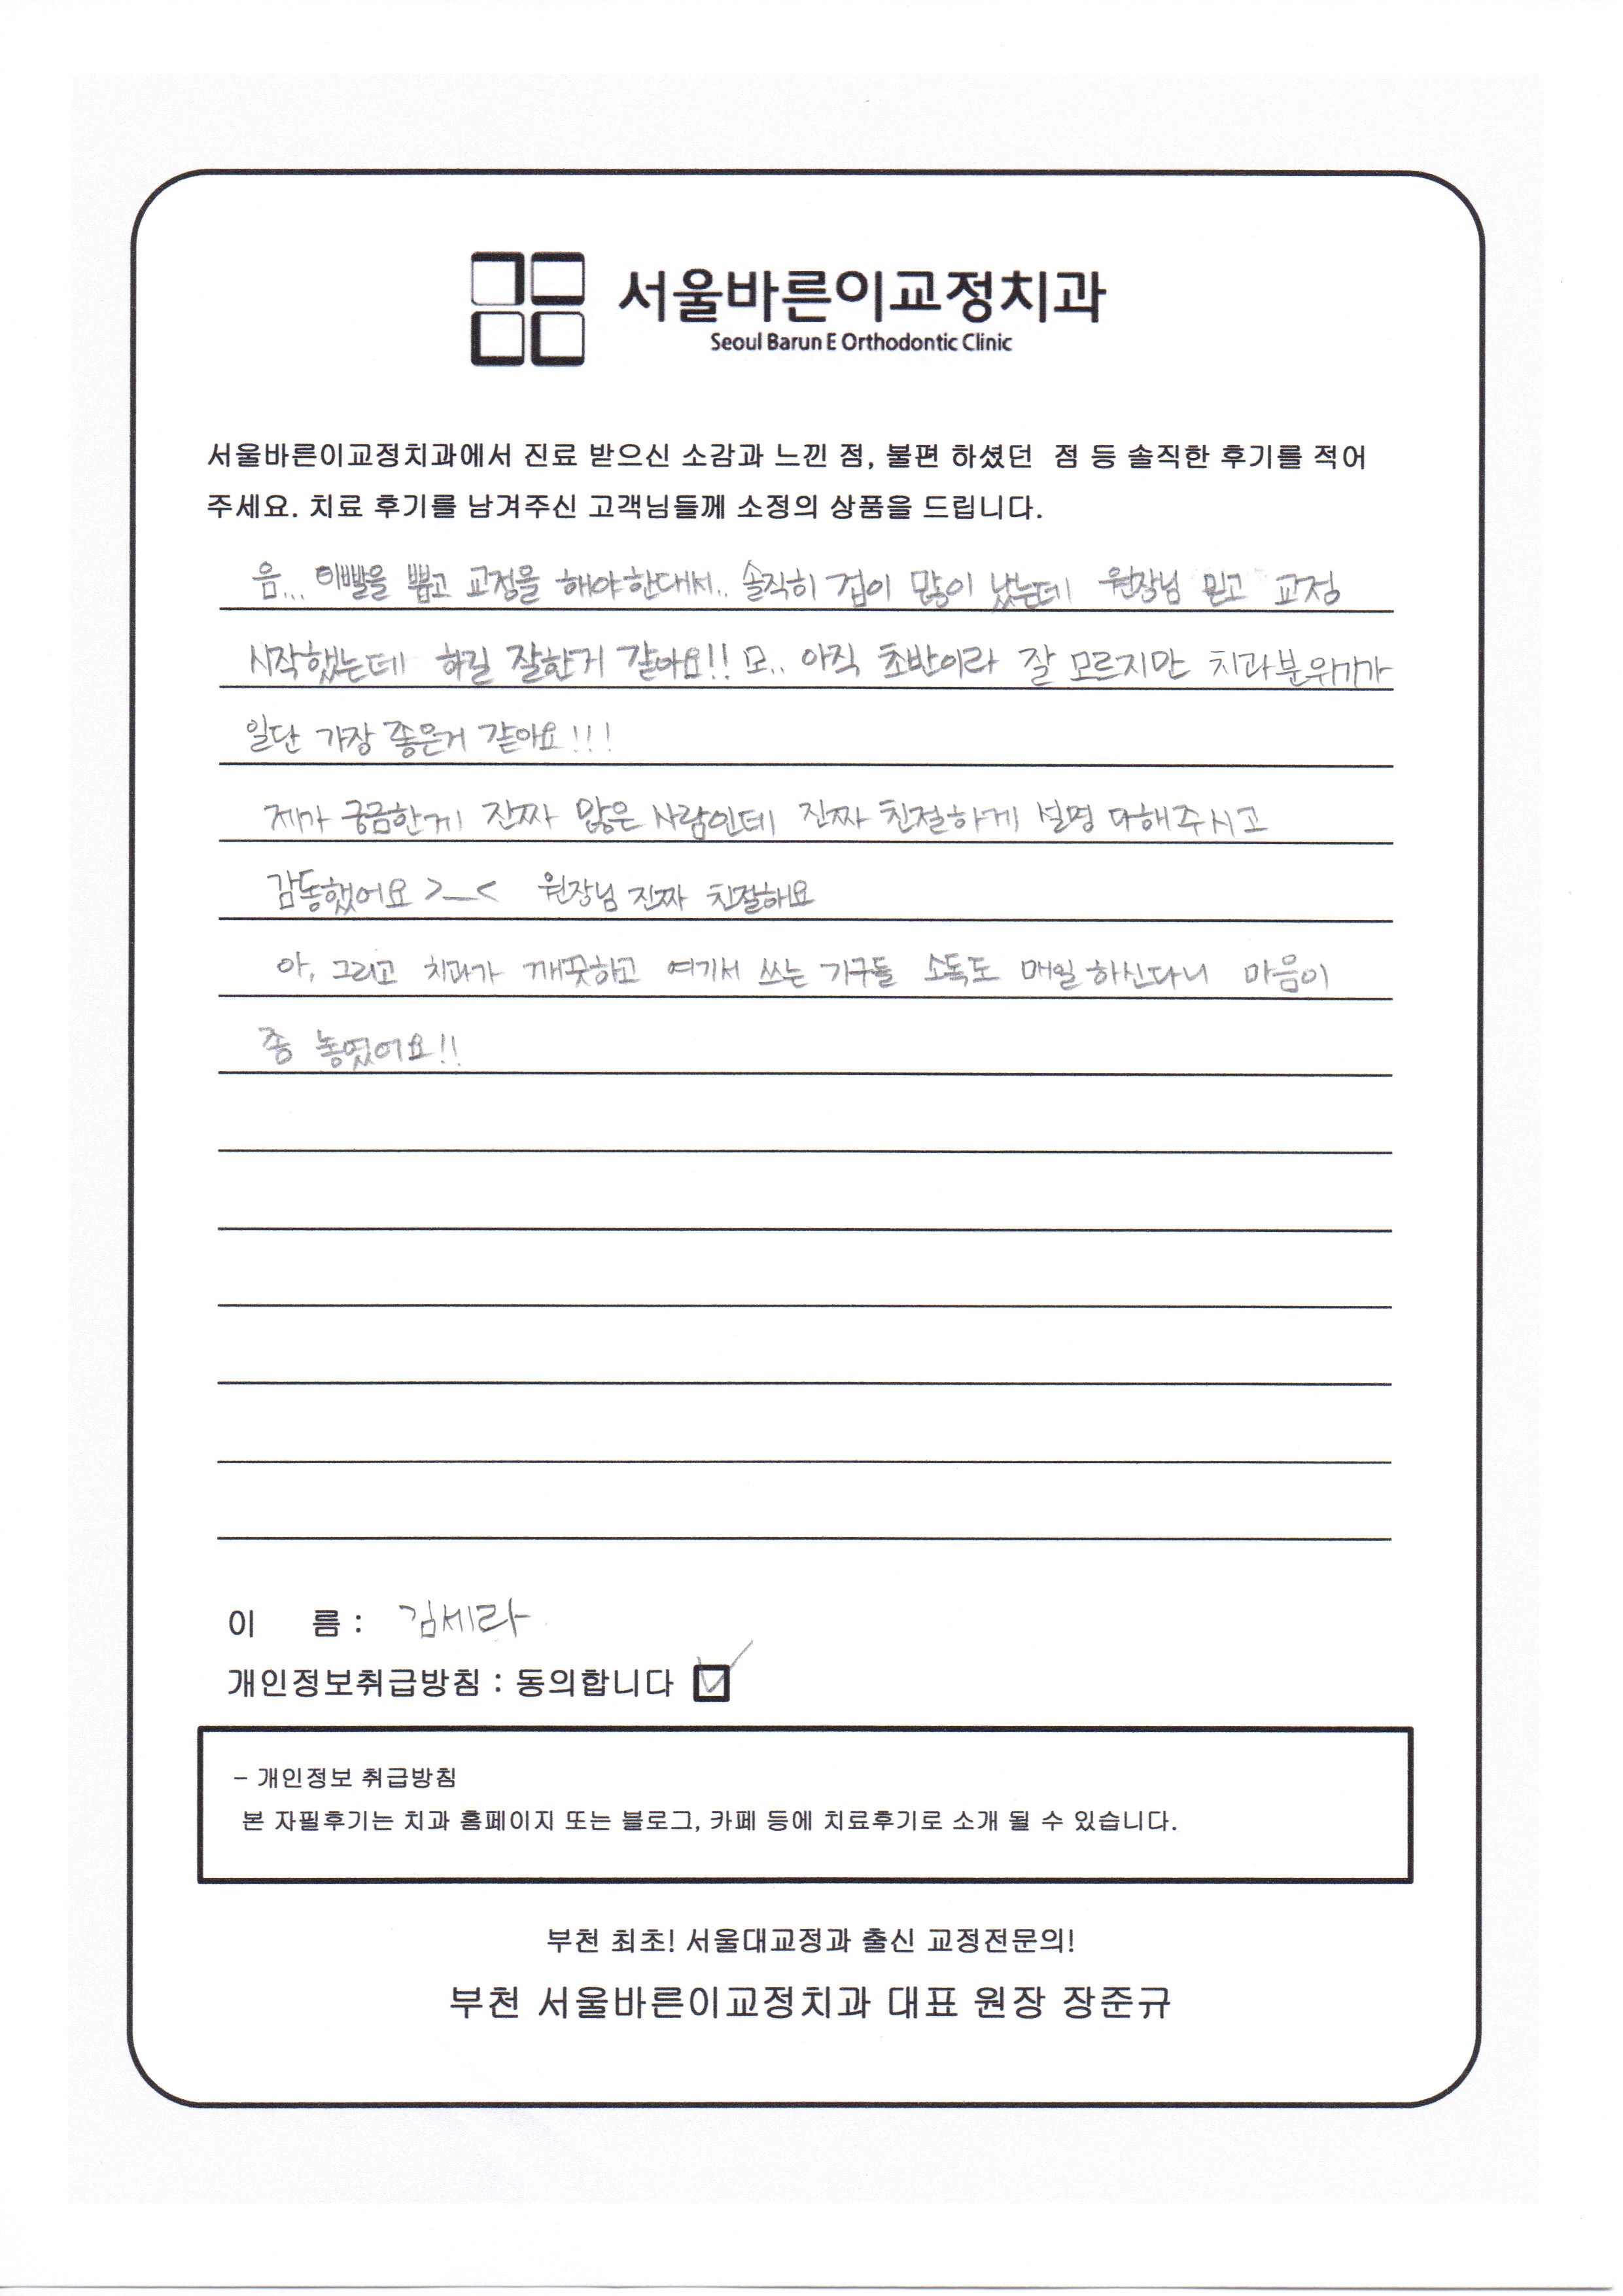 서울바른이교정치과
Seoul Barun E Orthodontic Clinic
서울바른이교정치과에서 진료 받으신 소감과 느낀 점, 불편 하셨던 점 등 솔직한 후기를 적어
주세요. 치료 후기를 남겨주신 고객님들께 소정의 상품을 드립니다.
음... 이빨을 뽑고 교정을 해야한대서.. 솔직히 겁이 많이 났는데 원장님 믿고 교정
시작했는데 하길 잘한거 같아요!! 모.. 아직 초반이라 잘 모르지만 치과분위기가
일단 가장 좋은거 같아요!!!
제가 궁금한게 진짜 많은 사람인데 진짜 친절하게 설명 다해주시고
감동했어요 >_< 원장님 진짜 친절해요
아, 그리고 치과가 깨끗하고 여기서 쓰는 기구들 소독도 매일 하신다니 마음이
좀 놓였어요!!
이 름 : 김세라
개인정보취급방침 : 동의합니다
- 개인정보 취급방침
본 자필후기는 치과 홈페이지 또는 블로그, 카페 등에 치료후기로 소개 될 수 있습니다.
부천 최초! 서울대교정과 출신 교정전문의!
부천 서울바른이교정치과 대표 원장 장준규